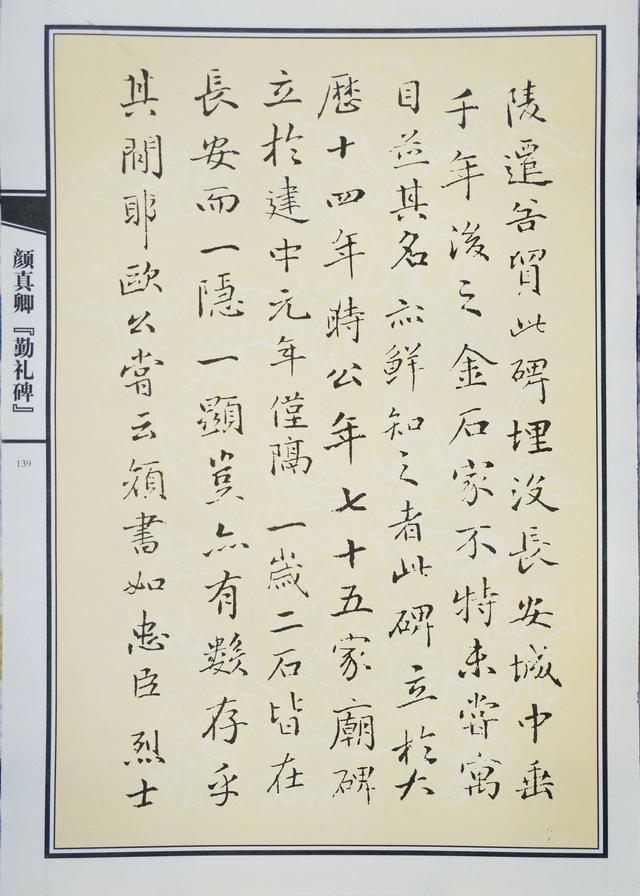 陵遷谷貿此碑埋没長安城中垂
千年後之金石家不特未嘗寓
目並其名亦鮮知之者此碑立於大
歷十四年時公年七十五家廟碑
立於建中元年僅隔一歲二石皆在
長安而一隱一顯豈亦有數存乎
其間耶歐公嘗云顏書如忠臣烈士
颜真卿『勤礼碑』
139